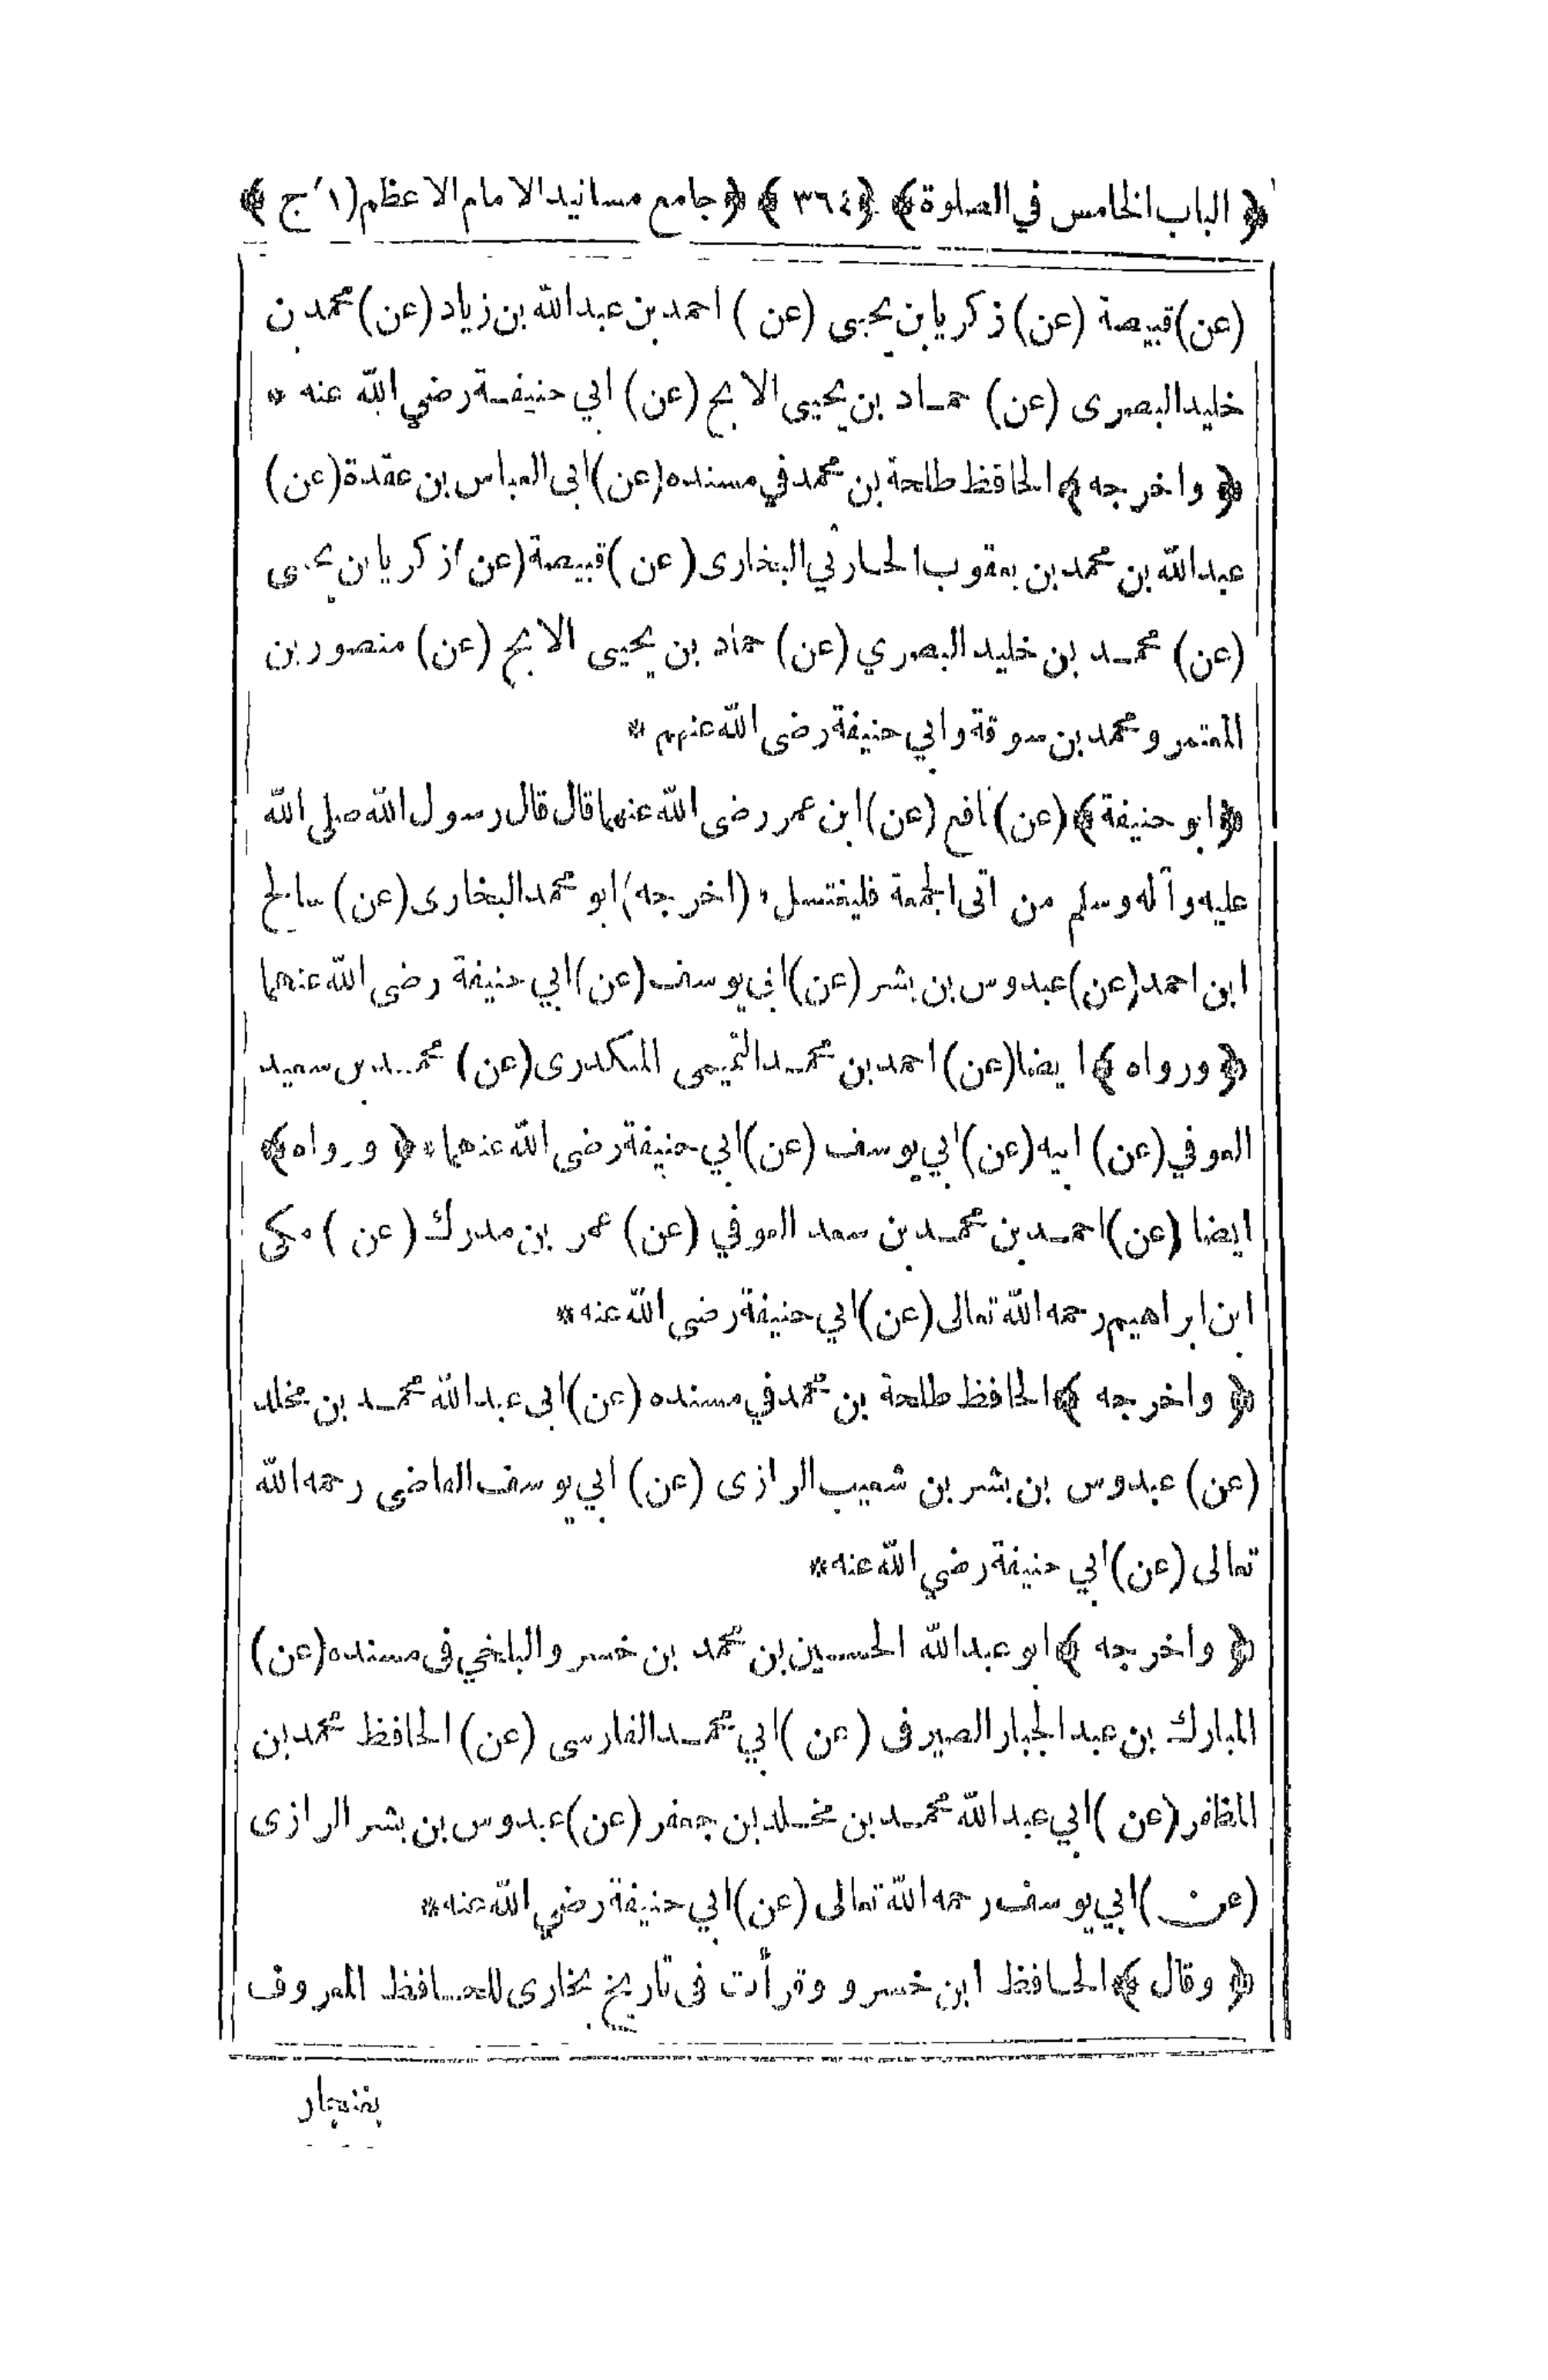 ﴿ الباب الخامس في الصلوة ﴾ ﴿ ٣٦٤ ﴾ ﴿ جامع مسانيد الامام الاعظم (ج ١) ﴾
(عن) قبيصة (عن) زكريا بن يحيى (عن) احمد بن عبد الله بن زياد (عن) محمد بن
خليد البصرى (عن) حماد بن يحيى الابح (عن) ابي حنيفة رضي الله عنه *
﴿ واخرجه ﴾ الحافظ طلحة بن محمد في مسنده (عن) ابى العباس بن عقدة (عن)
عبد الله بن محمد بن يعقوب الحارثي البخارى (عن) قبيصة (عن) زكريا بن يحيى
(عن) محمد بن خليد البصري (عن) حماد بن يحيى الابح (عن) منصور بن
المعتمر ومحمد بن سوقة وابي حنيفة رضى الله عنهم *
﴿ ابو حنيفة ﴾ (عن) نافع (عن) ابن عمر رضى الله عنهما قال قال رسول الله صلى الله
عليه وآله وسلم من اتى الجمعة فليغتسل * (اخرجه) ابو محمد البخارى (عن) صالح
ابن احمد (عن) عبدوس بن بشر (عن) ابي يوسف (عن) ابي حنيفة رضى الله عنهما
﴿ ورواه ﴾ ايضا (عن) احمد بن محمد التميمى المنكدرى (عن) محمد بن سعيد
العوفي (عن) ابيه (عن) ابي يوسف (عن) ابي حنيفة رضى الله عنهما * ﴿ ورواه ﴾
ايضا (عن) احمد بن محمد بن سعد العوفي (عن) عمر بن مدرك (عن) مكى
ابن ابراهيم رحمه الله تعالى (عن) ابي حنيفة رضى الله عنه *
﴿ واخرجه ﴾ الحافظ طلحة بن محمد في مسنده (عن) ابى عبد الله محمد بن مخلد
(عن) عبدوس بن بشر بن شعيب الرازى (عن) ابي يوسف القاضى رحمه الله
تعالى (عن) ابي حنيفة رضي الله عنه *
﴿ واخرجه ﴾ ابو عبد الله الحسين بن محمد بن خسرو البلخي فى مسنده (عن)
المبارك بن عبد الجبار الصيرفى (عن) ابي محمد الفارسى (عن) الحافظ محمد بن
المظفر (عن) ابي عبد الله محمد بن مخلد بن جعفر (عن) عبدوس بن بشر الرازى
(عن) ابي يوسف رحمه الله تعالى (عن) ابي حنيفة رضي الله عنه *
﴿ وقال ﴾ الحافظ ابن خسرو وقرأت فى تاريخ بخارى للحافظ المعروف
بغنجار